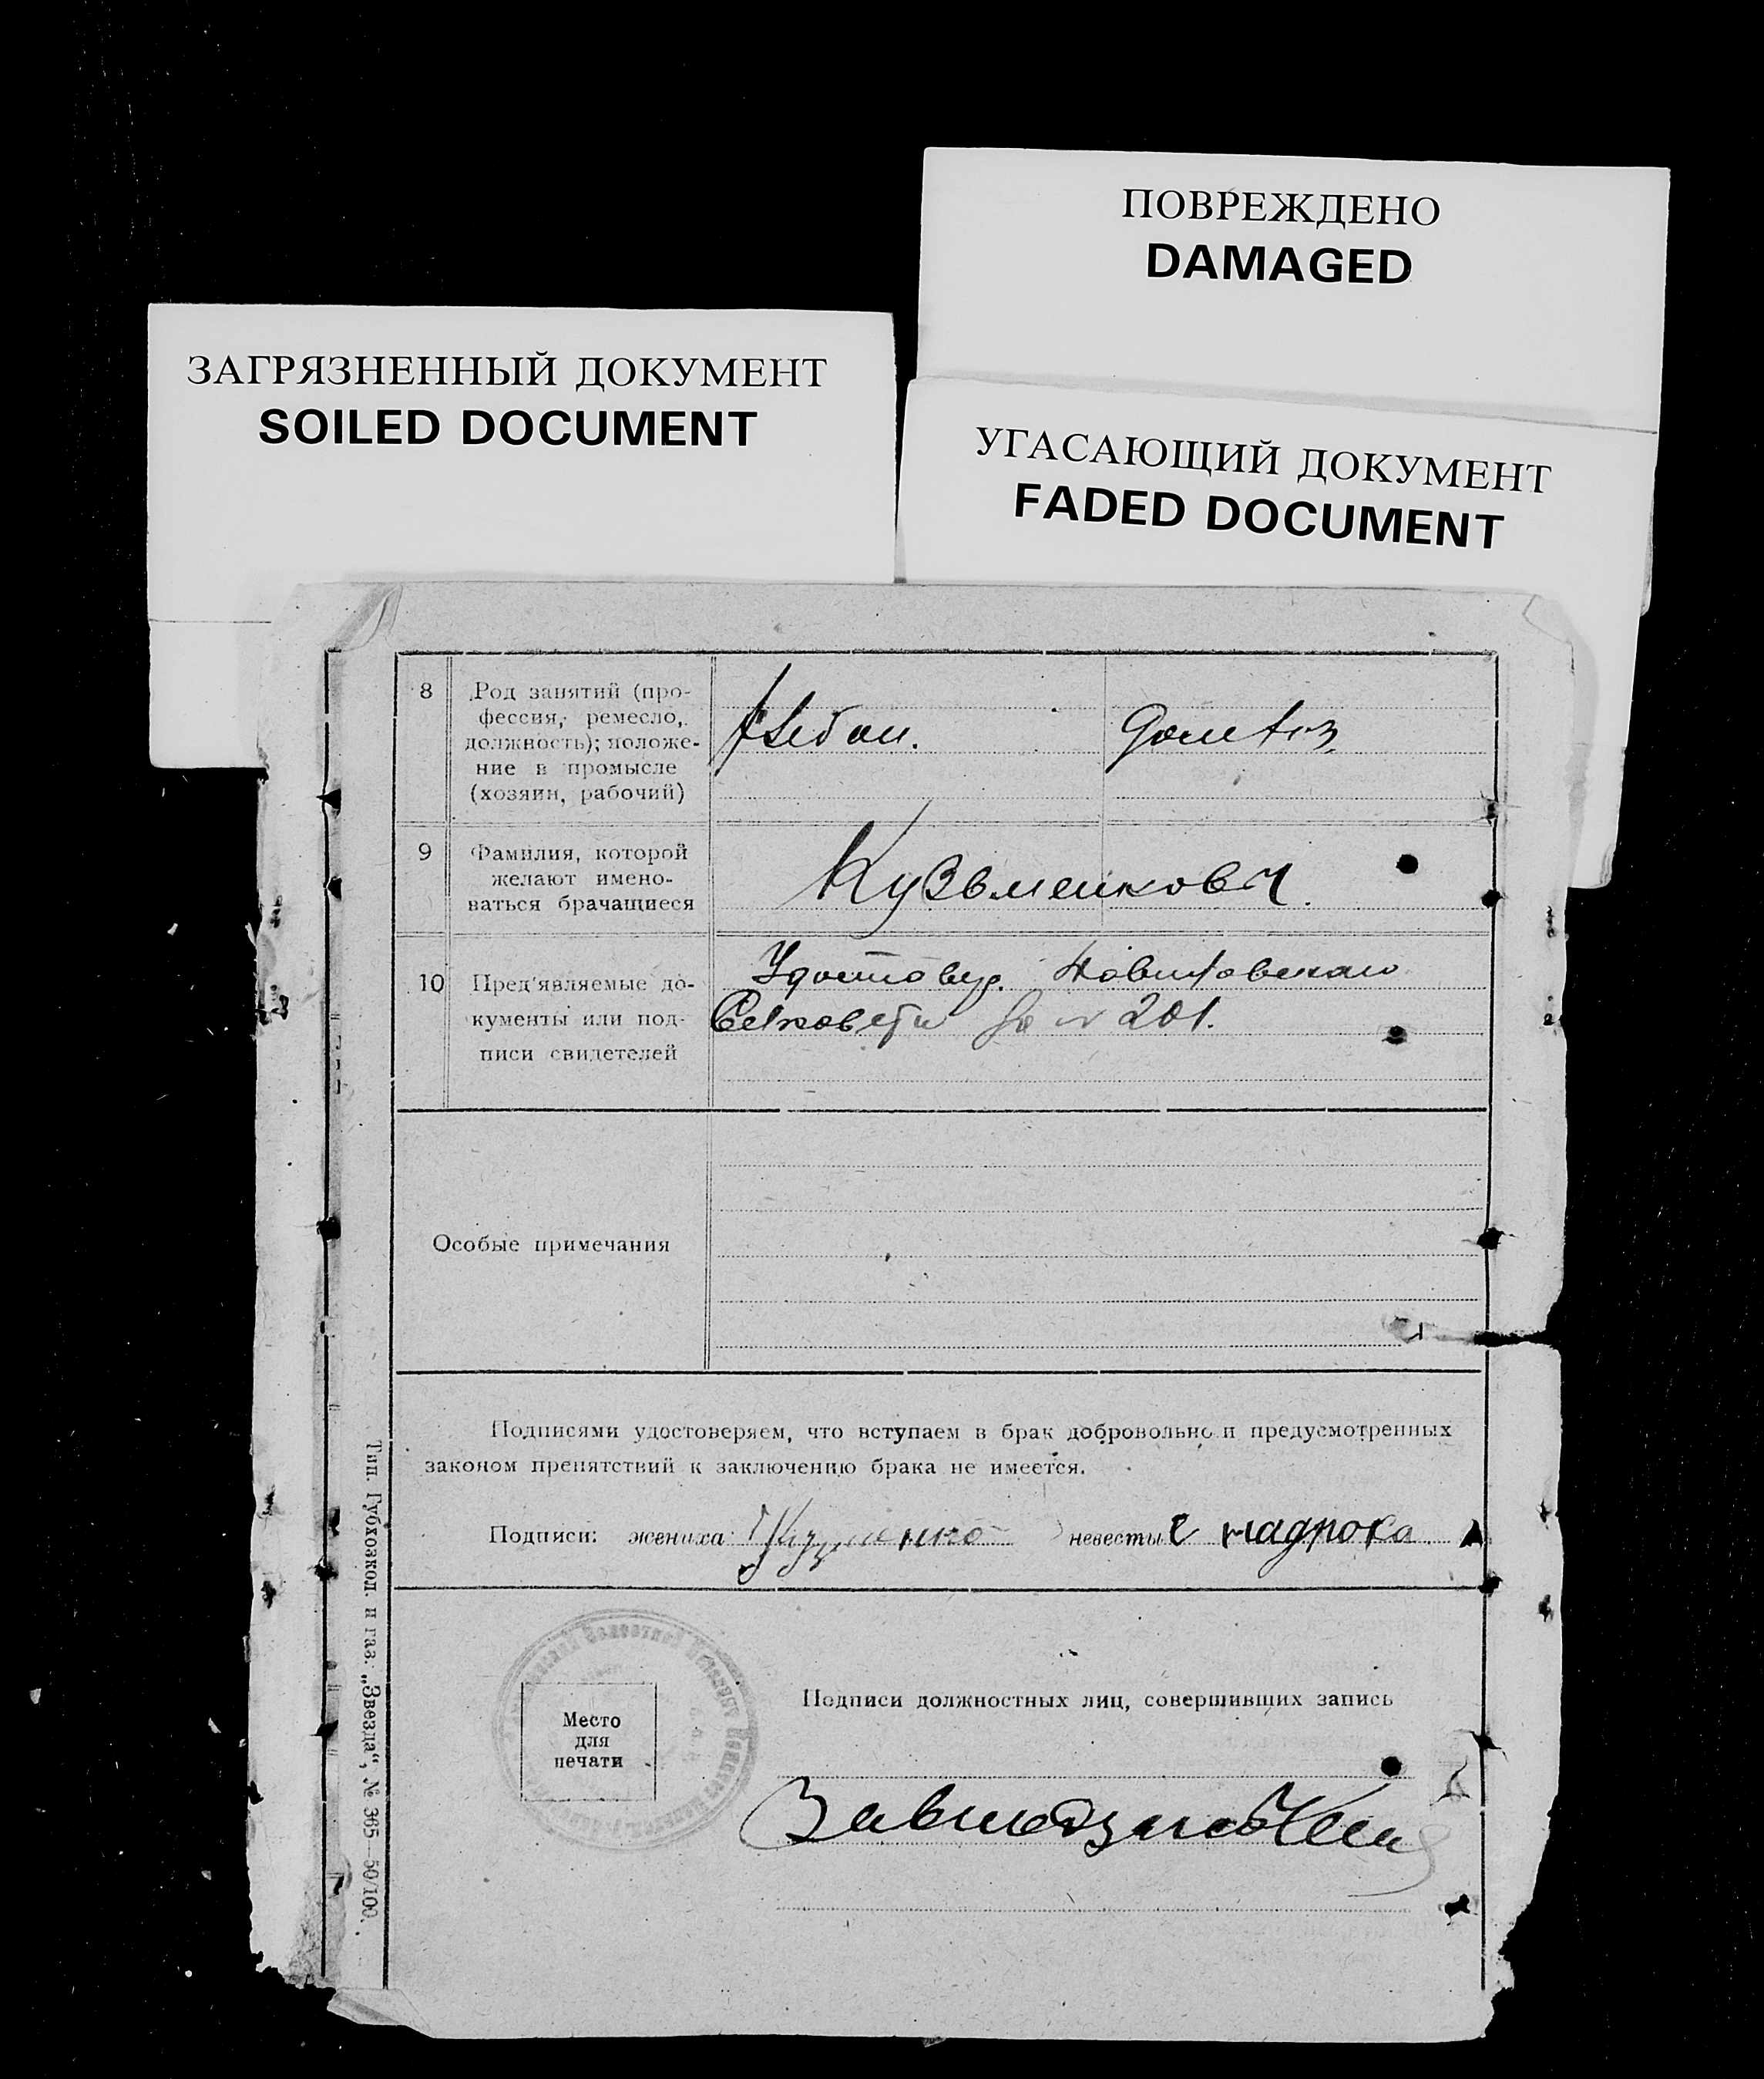 ПОВРЕЖДЕНО
DAMAGED
ЗАГРЯЗНЕННЫЙ ДОКУМЕНТ
SOILED DOCUMENT
УГАСАЮЩИЙ ДОКУМЕНТ
FADED DOCUMENT
8
Род занятий (про-
фессия, ремесло,
должность); положе-
ние в промысле
(хозяин, рабочий)
9
Фамилия, которой
желают имено-
ваться брачащиеся
Кузьменкович.
10
Пред'являемые до-
кументы или под-
писи свидетелей
Удостовер.
Сельсовета за № 201.
Особые примечания
Подписями удостоверяем, что вступаем в брак добровольно и предусмотренных
законом препятствий к заключению брака не имеется.
Подписи: жениха: невесты
Место
для
печати
Подписи должностных лиц, совершивших запись
Тип. Губхозкол. и газ. „Звезда“, № 365—50/100.